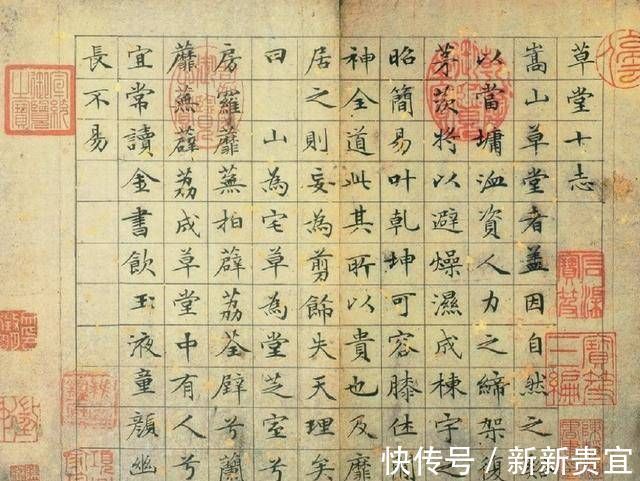 草堂十志
嵩山草堂者盖因自然之
以當墉洫資人力之締架復
茅茨將以避燥濕成棟宇之
昭簡易叶乹坤可容膝休
神全道此其所以貴也及靡
居之則妄為剪飾失天理矣
曰山為宅草為堂芝室兮
房羅蘼蕪柏薜荔荃壁兮蘭
蘼蕪薜荔成草堂中有人兮
宜常讀金書飲玉液童顏幽
長不易
石渠寶笈
寶笈三編
快传号／新新贵宜